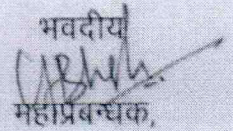 भवदीय
महाप्रबन्धक,